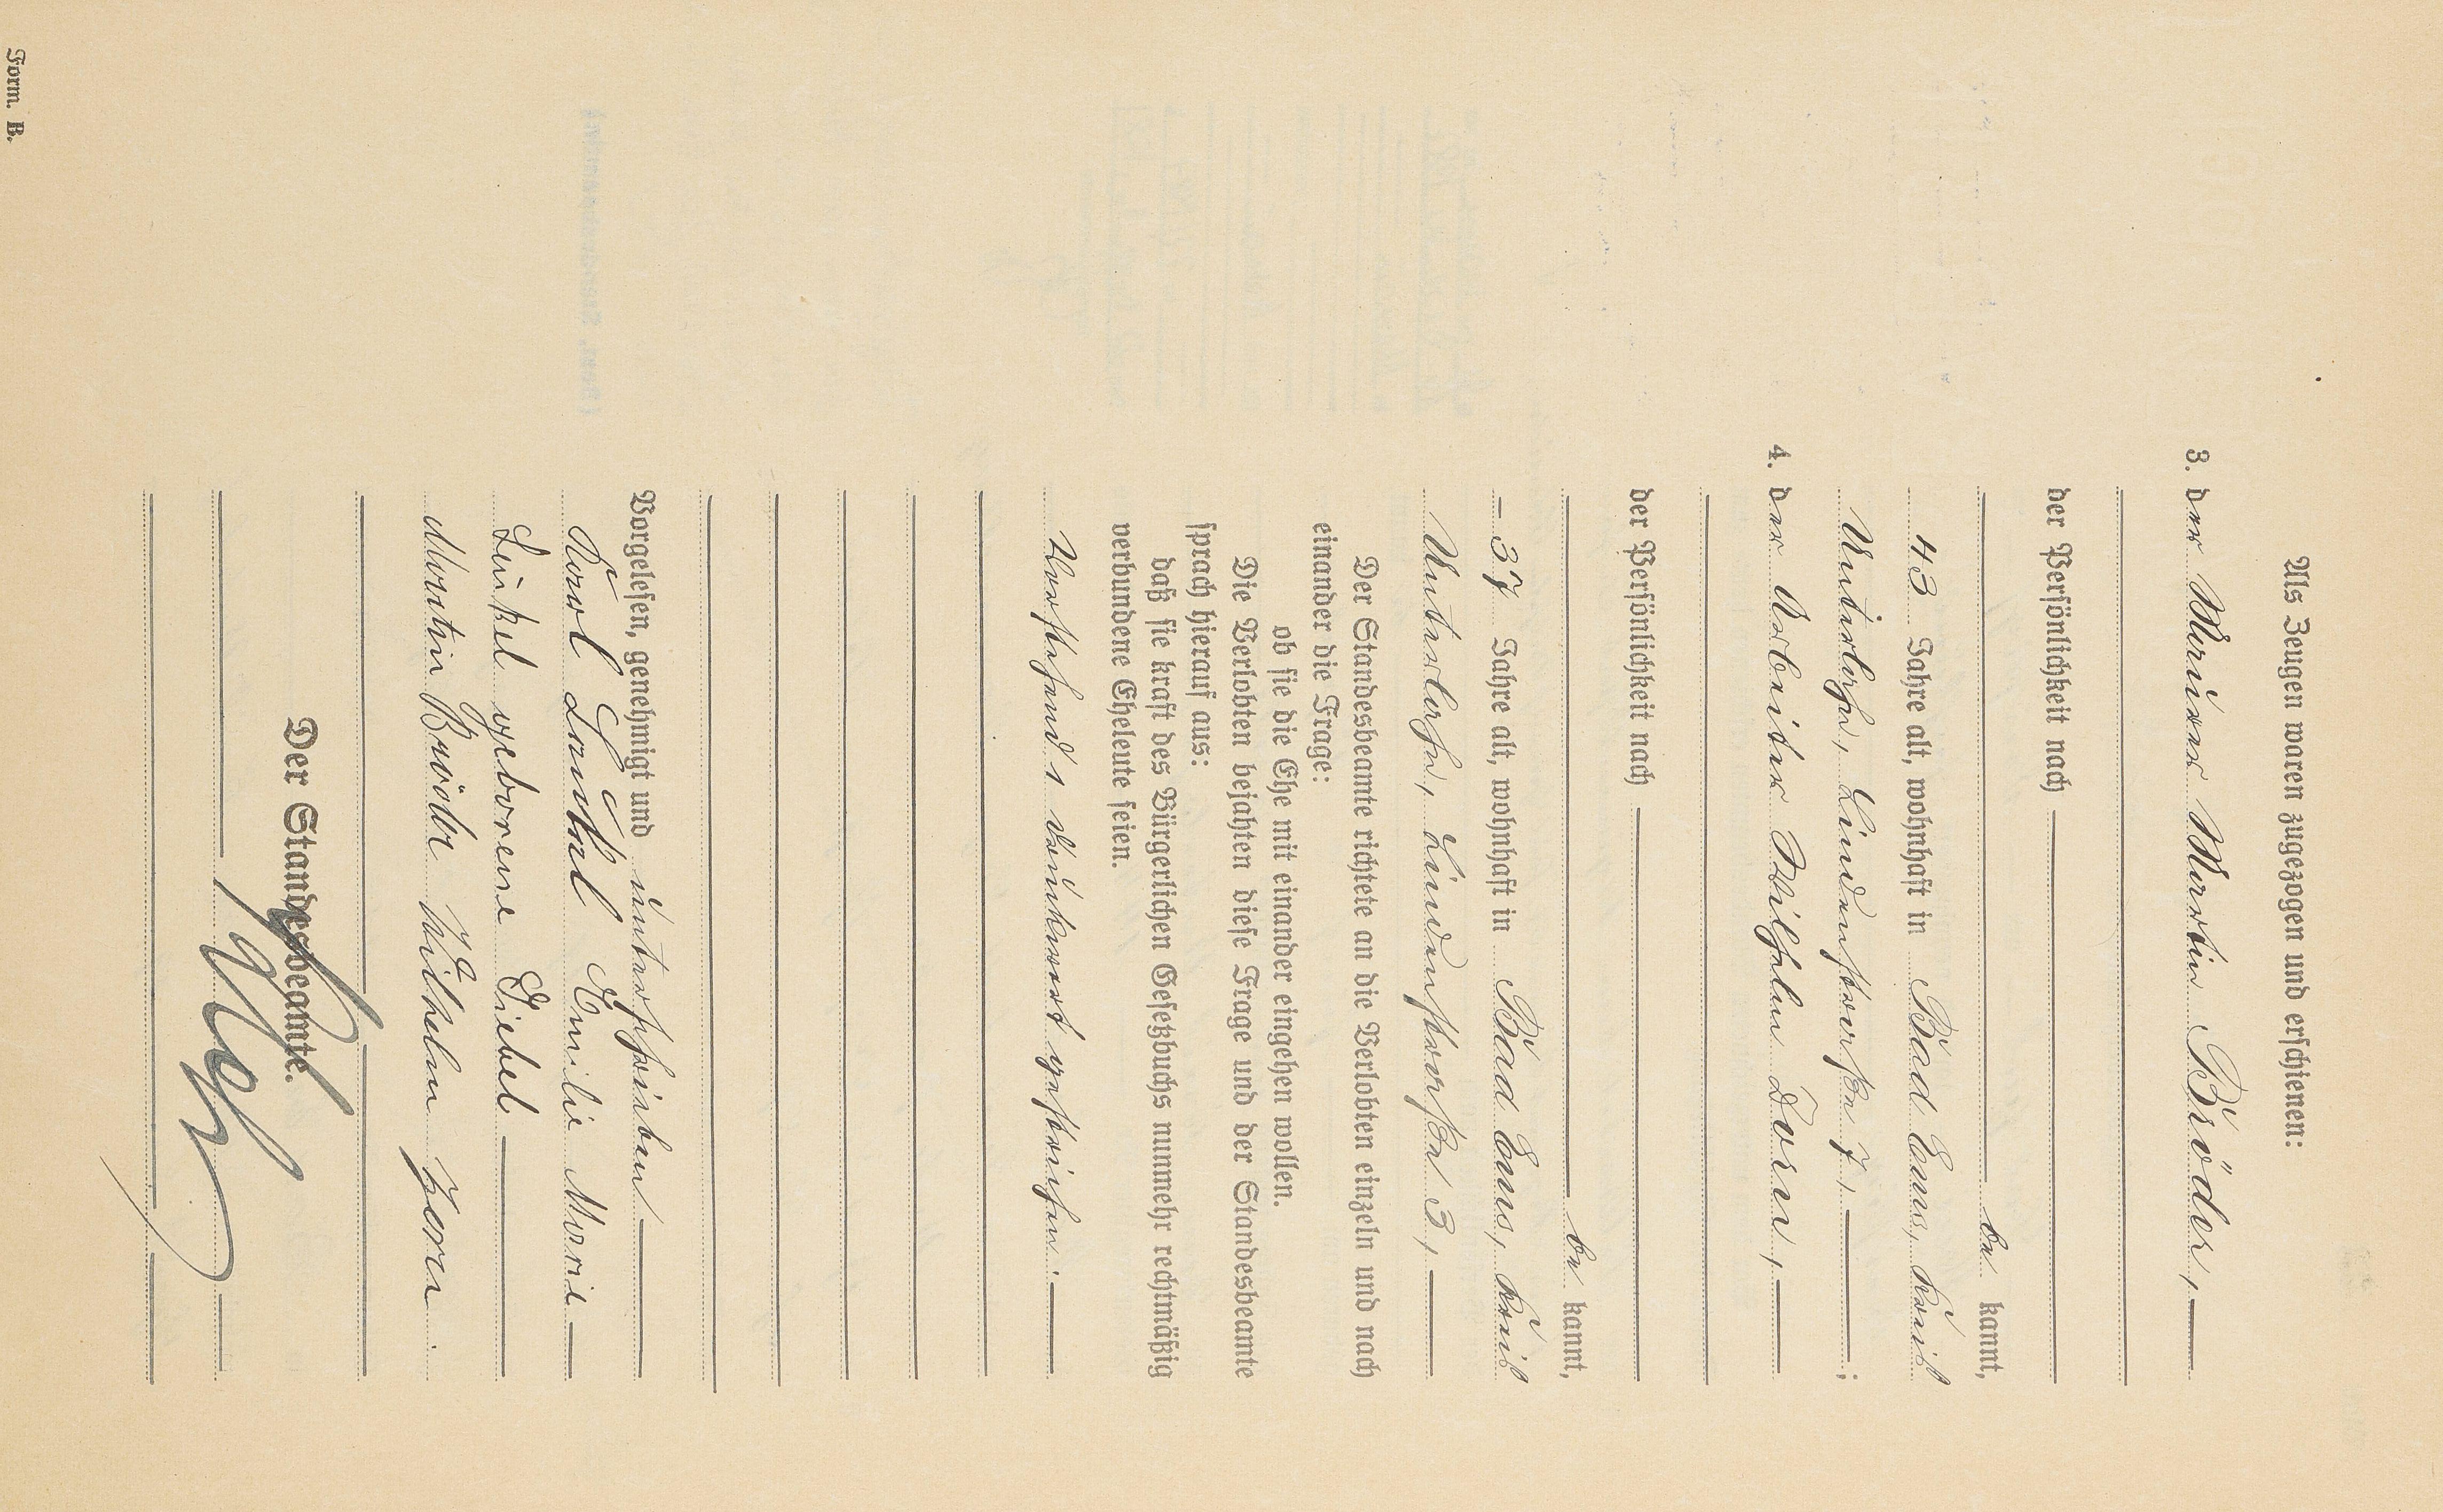 Als Zeugen waren zugezogen und erschienen:
3. der Maurer Martin Bröder,
der Persönlichkeit nach
be kannt,
43 Jahre alt, wohnhaft in Bad Ems, Kreis
Unterlahn, Lindenstraße 7, ;
4. der Arbeiter Wilhelm Dorn,
der Persönlichkeit nach
be kannt,
37 Jahre alt, wohnhaft in Bad Ems, Kreis
Unterlahn, Lindenstraße 3,
Der Standesbeamte richtete an die Verlobten einzeln und nach
einander die Frage:
ob sie die Ehe mit einander eingehen wollen.
Die Verlobten bejahten diese Frage und der Standesbeamte
sprach hierauf aus:
daß sie kraft des Bürgerlichen Gesetzbuchs nunmehr rechtmäßig
verbundene Eheleute seien.
Vorstehend 1 Druckwort gestrichen.
Vorgelesen, genehmigt und unterschrieben
Karl Emilie Marie
geborene Diebel
Martin Bröder Wilhelm Dorn.
Der Standesbeamte.
Form. B.